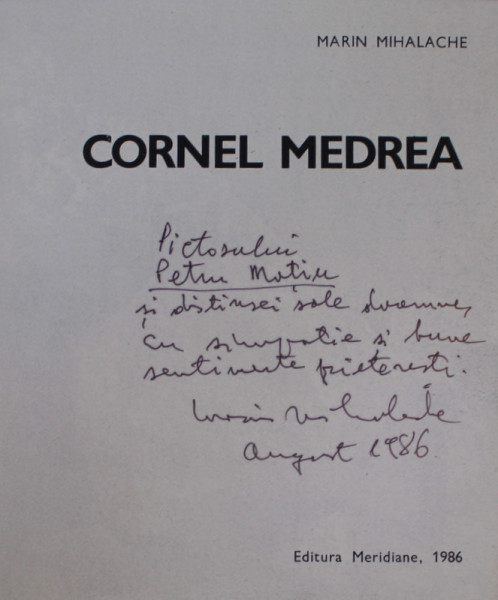 MARIN MIHALACHE
CORNEL MEDREA
Pictorului
Petru Moțiu
și distinsei sale doamne,
cu simpatie și bune
sentimente prietenești.
Marin Mihalache
August 1986.
Editura Meridiane, 1986